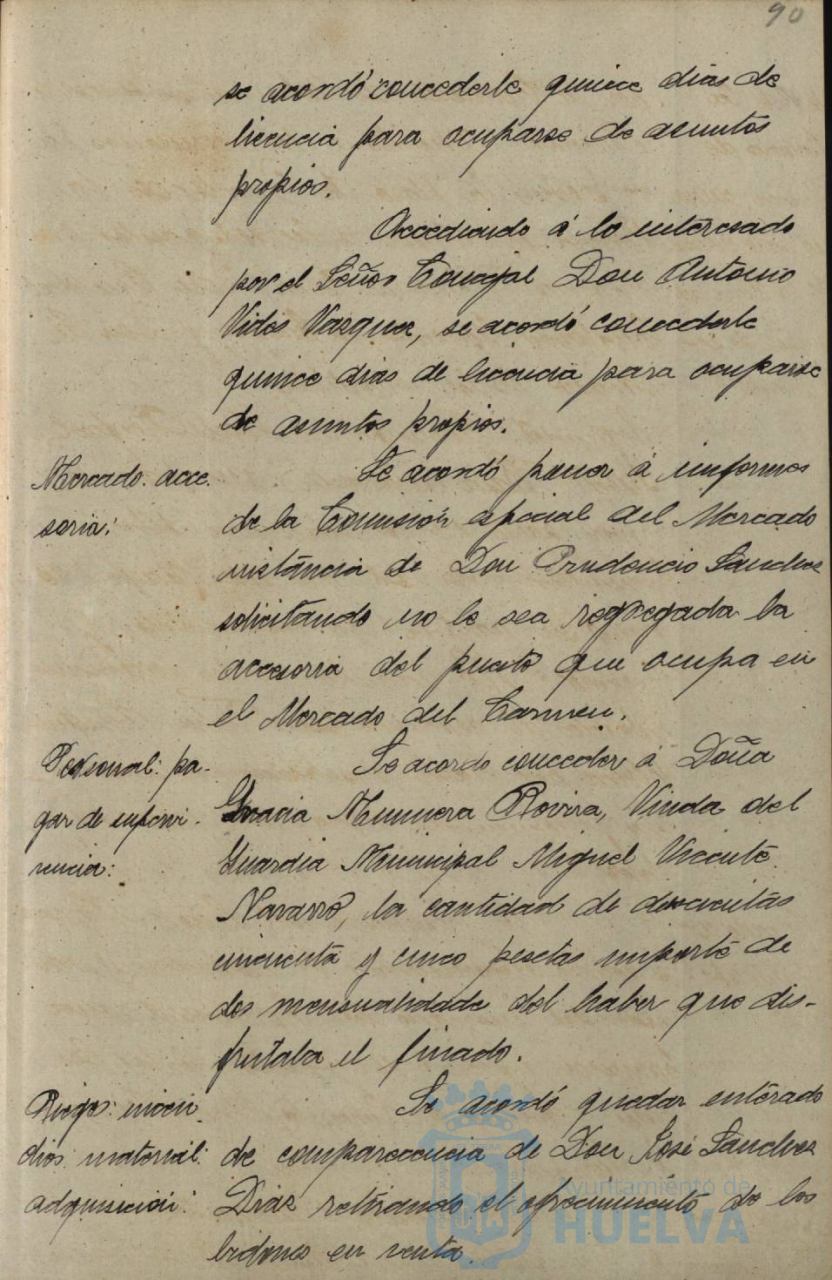 90
se acordó concederle quince dias de
licencia para ocuparse de asuntos
propios.
Accediendo á lo interesado
por el Señor Concejal Don Antonio
Vides Vazquez, se acordó concederle
quince dias de licencia para ocuparse
de asuntos propios.
Mercado: acce-
soria:
Se acordó pasar á informes
de la Comisión especial del Mercado
instancia de Don Prudencio Sanchez
solicitando no le sea segregada la
accesoria del puesto que ocupa en
el Mercado del Carmen.
Personal: pa-
gar de supervi-
vencia:
Se acordo conceder á Doña
Gracia Munuera Rovira, Viuda del
Guardia Municipal Miguel Vicente
Navarro, la cantidad de doscientas
cincuenta y cinco pesetas importe de
dos mensualidades del haber que dis-
frutaba el finado.
Riego: incen-
dios: material:
adquisición:
Se acordó quedar enterado
de comparecencia de Don José Sanchez
Diaz retirando el ofrecimiento de los
bidones en venta.
Ayuntamiento de
HUELVA